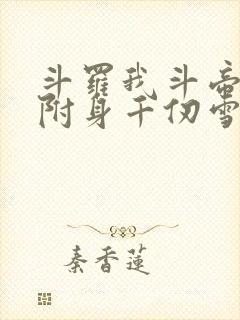 斗羅我斗帝
附身千仞雪
秦香蓮